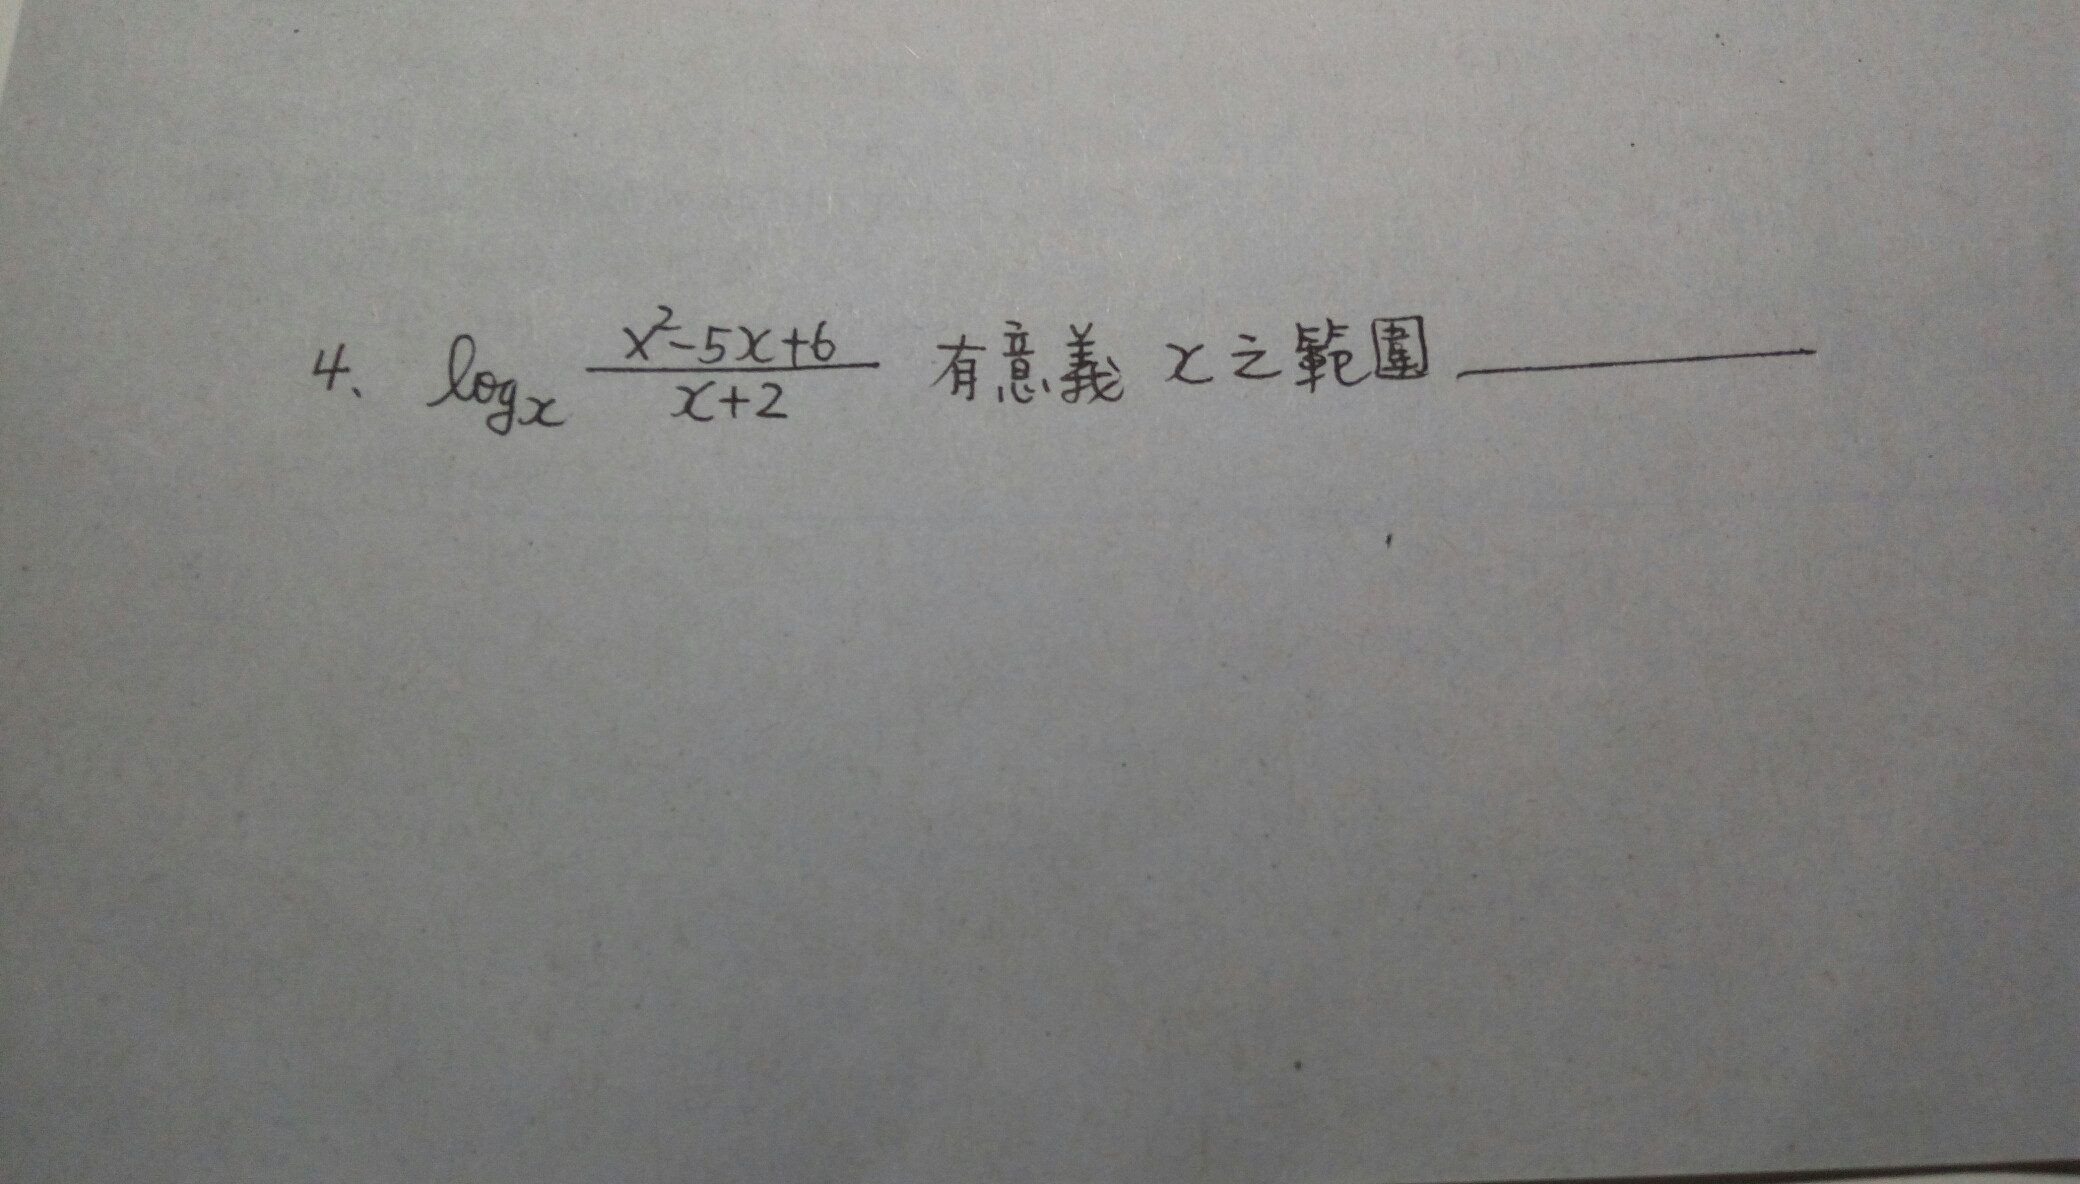 4、 logₓ (x²-5x+6)/(x+2) 有意義 x之範圍________